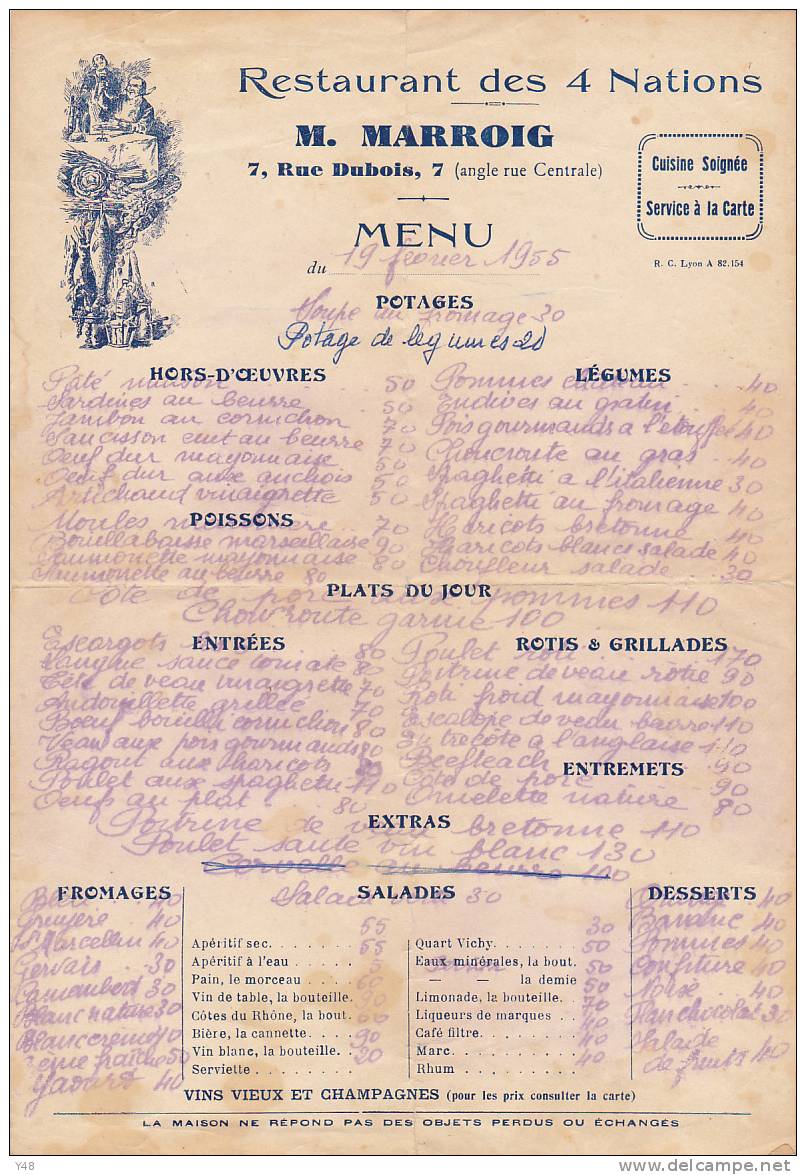 Restaurant des 4 Nations
M. MARROIG
7, Rue Dubois, 7 (angle rue Centrale)
Cuisine Soignée
Service à la Carte
MENU
du 19 février 1955
R. C. Lyon A 82.154
POTAGES
Soupe au fromage 30
Potage de légumes 20
HORS-D'ŒUVRES
Pâté maison 50
Sardines au beurre 50
Jambon au cornichon 70
Saucisson cuit au beurre 70
Oeuf dur mayonnaise 50
Oeuf dur aux anchois 50
Artichaud vinaigrette 50
LÉGUMES
Pommes 40
Endives au gratin 40
Pois gourmands a l'etouffee 40
Choucroute au gras 40
Spaghetti a l'italienne 30
Spaghetti au fromage 40
Haricots bretonne 40
Haricots blancs salade 40
Choufleur salade 30
POISSONS
Moules 70
Bouillabaisse marseillaise 90
Saumonette mayonnaise 80
Saumonette au beurre 80
PLATS DU JOUR
Côte de porc aux pommes 110
Chowroute garnie 100
ENTRÉES
Escargots 80
Langue sauce tomate 80
Tête de veau vinaigrette 70
Andouillette grillée 70
Boeuf bouilli cornichon 80
Veau aux pois gourmands 80
Ragout aux haricots
Poulet aux spaghetti 110
Oeufs au plat 80
ROTIS & GRILLADES
Poulet roti 170
Poitrine de veau rotie 90
Roti froid mayonnaise 100
Escalope de veau beurre 110
Entrecôte a l'anglaise 110
Beefteach 90
Côte de porc 90
ENTREMETS
Omelette nature 80
EXTRAS
Poitrine de veau bretonne 110
Poulet sauté vin blanc 130
Cervelle au beurre 110
FROMAGES
Bleu 40
Gruyère 40
St Marcellin 40
Gervais 30
Camembert 30
Blanc nature 30
Blanc creme 40
Creme fraîche 50
Yaourt 40
SALADES
Salade 30
55
Apéritif sec 55
Apéritif à l'eau 5
Pain, le morceau 60
Vin de table, la bouteille 90
Côtes du Rhône, la bout. 60
Bière, la cannette 90
Vin blanc, la bouteille 20
Serviette
30
Quart Vichy 50
Eaux minérales, la bout. 50
— — la demie 50
Limonade, la bouteille 70
Liqueurs de marques 40
Café filtre 40
Marc 40
Rhum
DESSERTS
40
Banane 40
Pommes 40
Confiture 40
Noix 40
Flan chocolat 30
Salade
de fruits 40
VINS VIEUX ET CHAMPAGNES (pour les prix consulter la carte)
LA MAISON NE RÉPOND PAS DES OBJETS PERDUS OU ÉCHANGÉS
Y48
delcampe.net